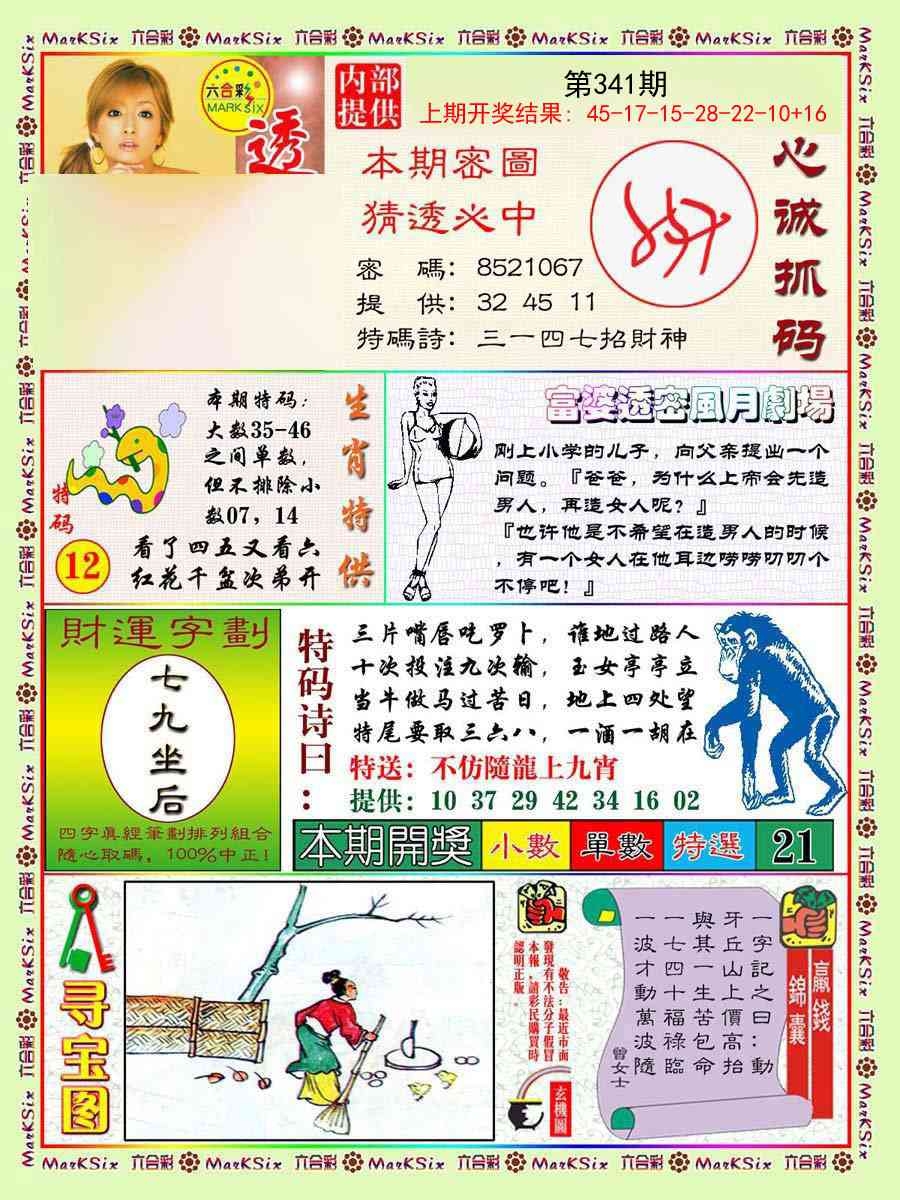 MarKSix 六合彩 MarKSix 六合彩 MarKSix 六合彩 MarKSix 六合彩 MarKSix 六合彩
六合彩
MARK six
透
内部
提供
第341期
上期开奖结果：45-17-15-28-22-10+16
本期密圖
猜透必中
密 碼：8521067
提 供：32 45 11
特碼詩：三一四七招財神
心诚抓码
本期特码：
大数35-46
之间单数，
但不排除小
数07，14
看了四五又看六
红花千盆次弟开
生肖特供
特码
12
富婆透密風月劇場
刚上小学的儿子，向父亲提出一个
问题。『爸爸，为什么上帝会先造
男人，再造女人呢？』
『也许他是不希望在造男人的时候
，有一个女人在他耳边唠唠叨叨个
不停吧！』
財運字劃
七九坐后
四字眞經筆劃排列組合
隨心取碼，100%中正！
特码诗曰：
三片嘴唇吃罗卜，谁地过路人
十次投注九次输，玉女亭亭立
当牛做马过苦日，地上四处望
特尾要取三六八，一酒一胡在
特送：不仿隨龍上九宵
提供：10 37 29 42 34 16 02
本期開獎 小數 單數 特選 21
寻宝图
敬告：最近市面
發現有不法分子假冒
本報，請彩民購買時
認明正版。
玄機圖
一字記之曰：動
牙丘山上價高抬
與其一生苦包命
一七四十福祿臨
一波才動萬波隨
曾女士
贏錢
錦囊
MarKSix 六合彩 MarKSix 六合彩 MarKSix 六合彩 MarKSix 六合彩 MarKSix 六合彩